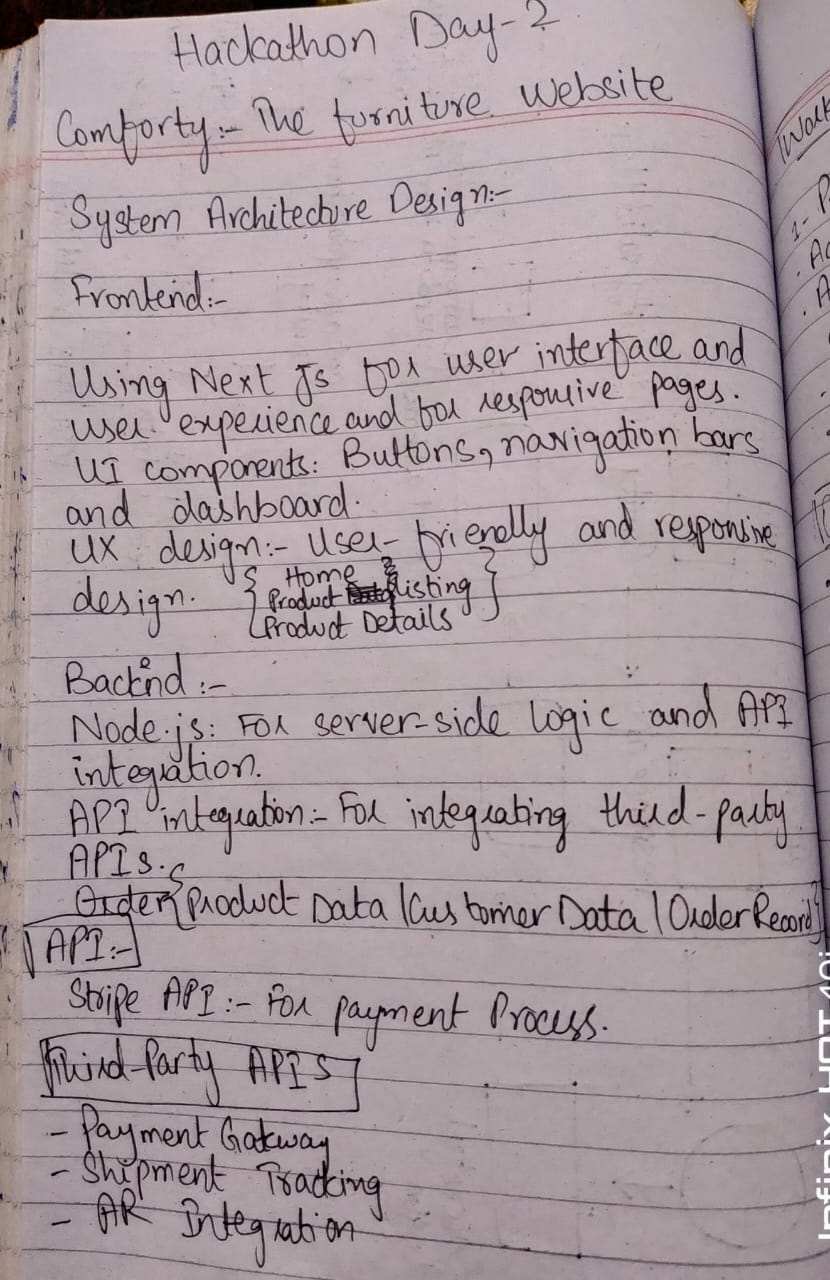 Hackathon Day-2
Comforty:- The furniture website
System Architecture Design:-
Frontend:-
Using Next Js for user interface and
user experience and for responsive pages.
UI components: Buttons, navigation bars
and dashboard.
UX design:- User-friendly and responsive
design. { Home
Product listing
Product Details }
Backend :-
Node.js: For server-side logic and API
integration.
API integration:- For integrating third-party
APIs.
Order {Product Data | Customer Data | Order Record}
API:-
Stripe API:- For payment Process.
Third-Party APIS
- Payment Gatway
- Shipment Tracking
- AR Integration
1-
Infinix HOT 40i